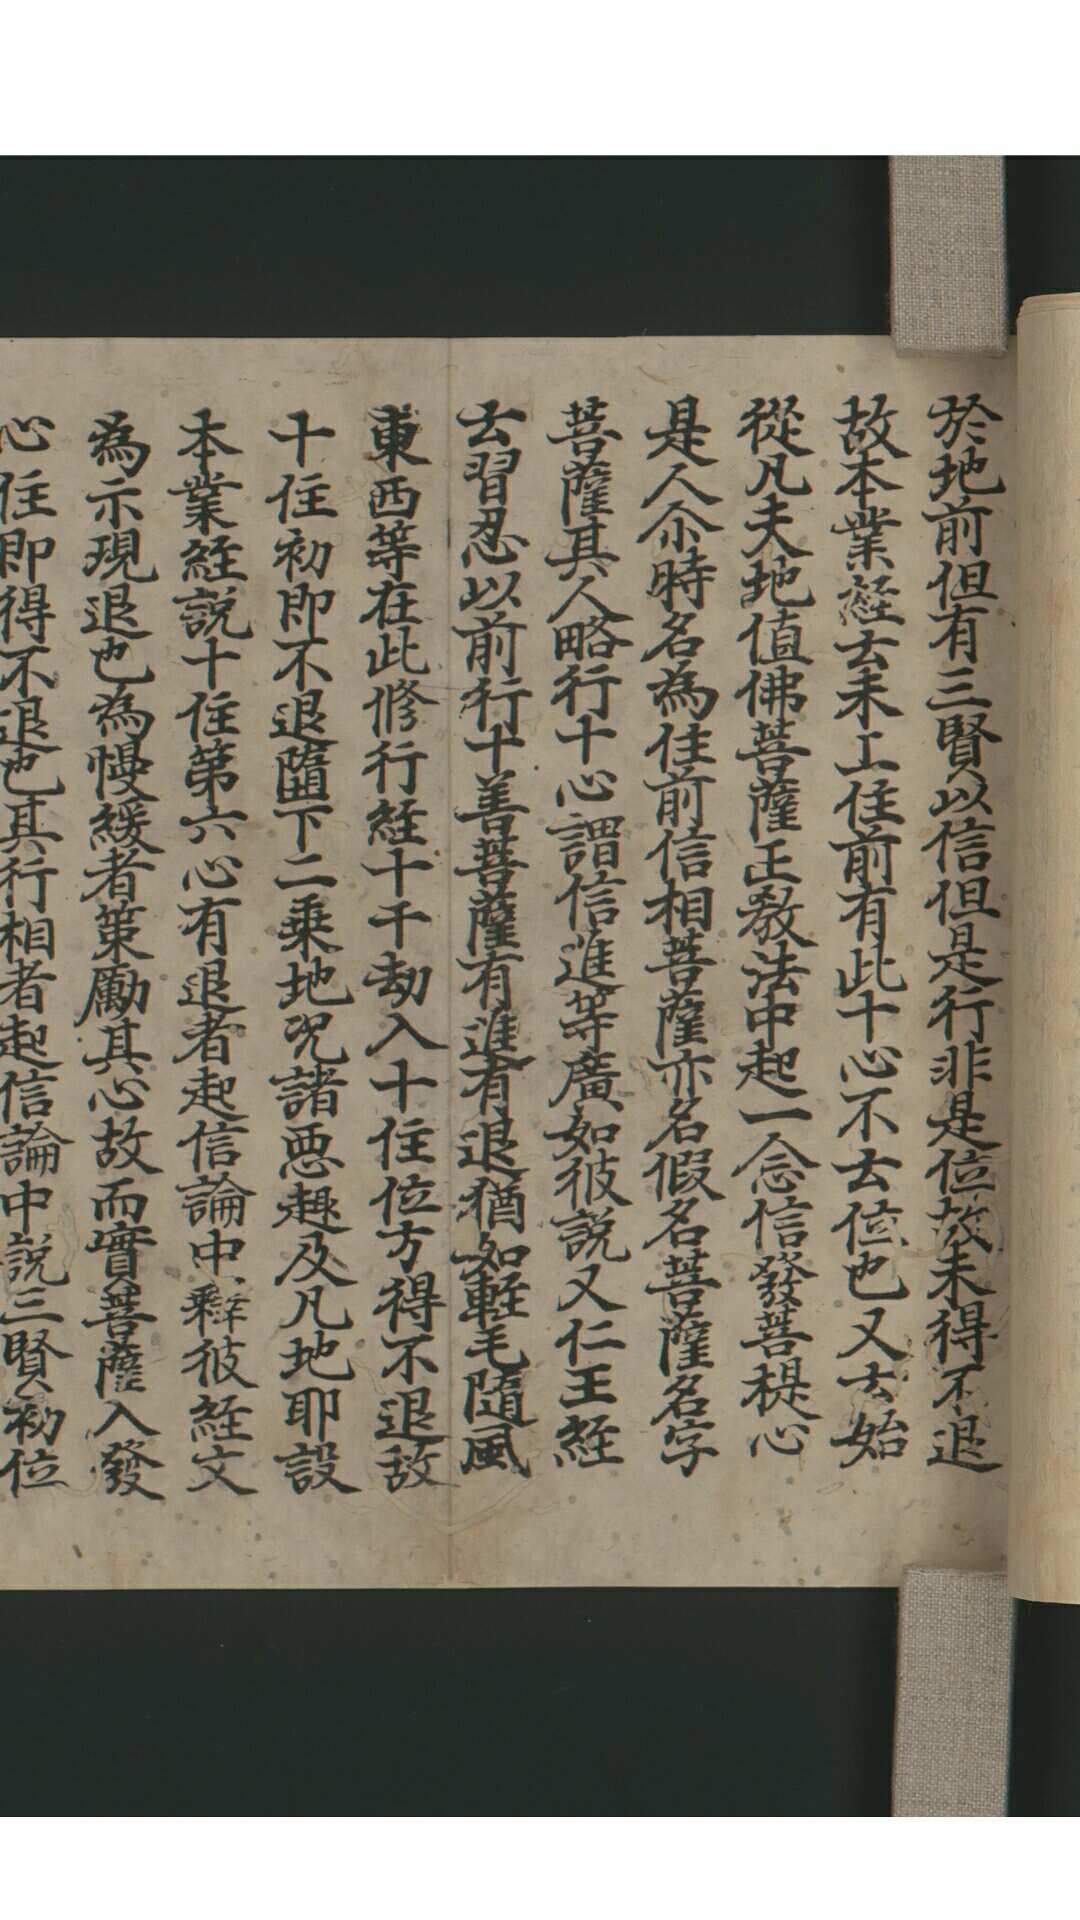 於地前但有三賢以信但是行非是位故未得不退
故本業経云未上住前有此十心不云位也又云始
從凡夫地值佛菩薩正教法中起一念信發菩提心
是人尒時名為住前信相菩薩亦名假名菩薩名字
菩薩其人略行十心謂信進等廣如彼說又仁王経
云習忍以前行十善菩薩有進有退猶如軽毛隨風
東西等在此修行経十千劫入十住位方得不退故
十住初即不退墮下二乗地况諸悪趣及凡地耶設
本業経說十住第六心有退者起信論中釋彼経文
為示現退也為慢緩者策勵其心故而實菩薩入發
心住即得不退也其行相者起信論中說三賢初位